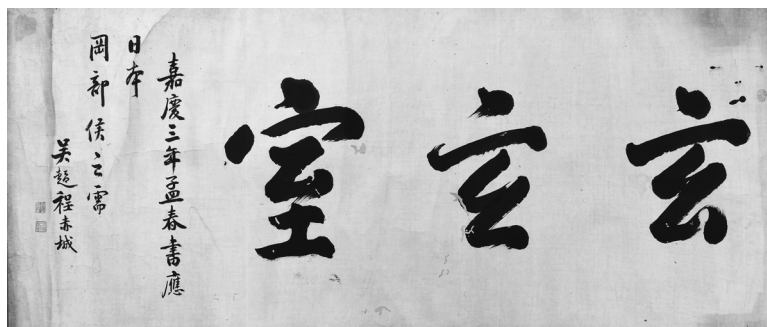 玄玄室
嘉慶三年孟春書應
日本
岡部侯之需
吳趨程赤城